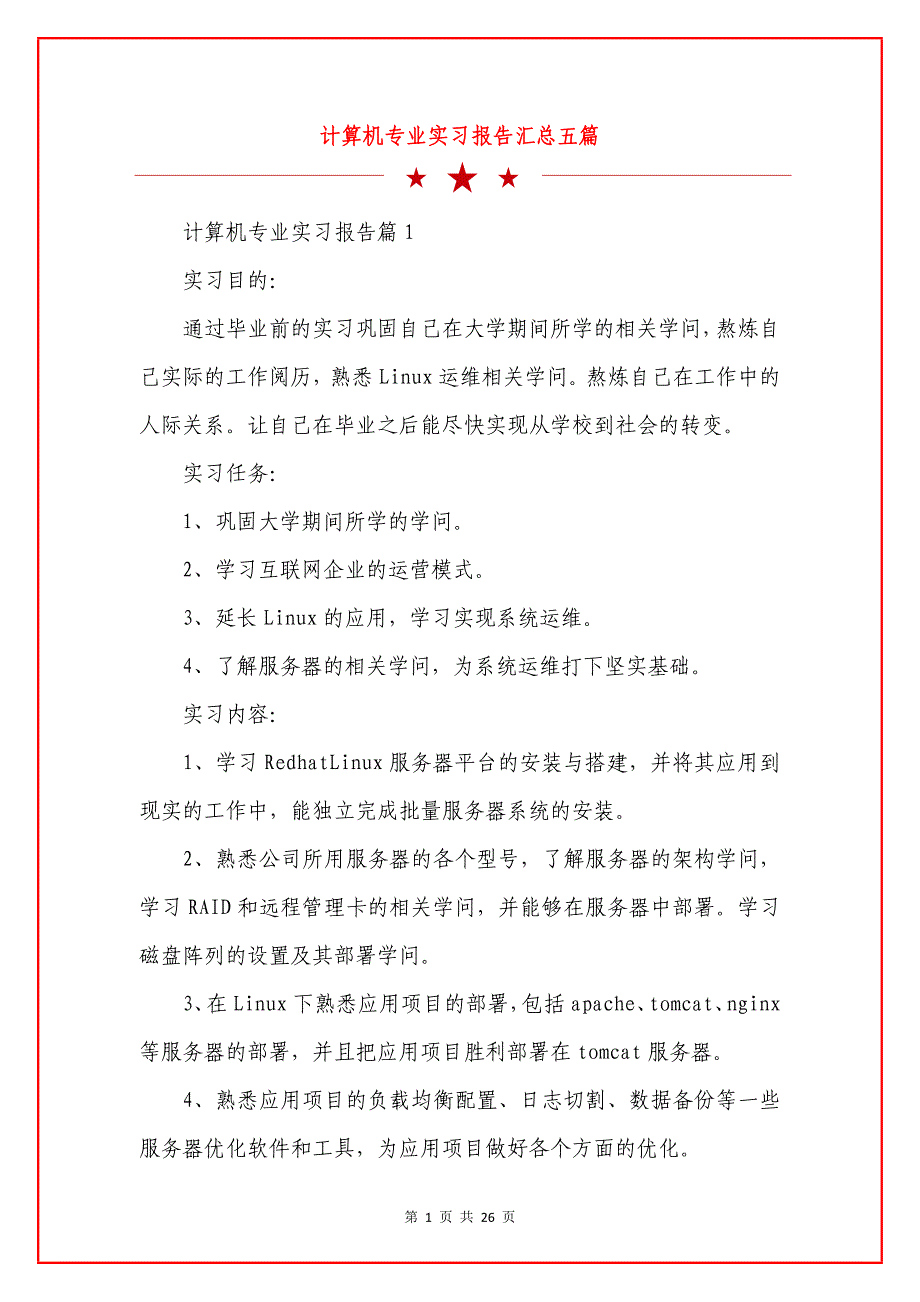 计算机专业实习报告汇总五篇
计算机专业实习报告篇 1
实习目的：
通过毕业前的实习巩固自己在大学期间所学的相关学问，熬炼自
己实际的工作阅历，熟悉 Linux 运维相关学问。熬炼自己在工作中的
人际关系。让自己在毕业之后能尽快实现从学校到社会的转变。
实习任务：
1、巩固大学期间所学的学问。
2、学习互联网企业的运营模式。
3、延长 Linux 的应用，学习实现系统运维。
4、了解服务器的相关学问，为系统运维打下坚实基础。
实习内容：
1、学习 RedhatLinux 服务器平台的安装与搭建，并将其应用到
现实的工作中，能独立完成批量服务器系统的安装。
2、熟悉公司所用服务器的各个型号，了解服务器的架构学问，
学习 RAID 和远程管理卡的相关学问，并能够在服务器中部署。学习
磁盘阵列的设置及其部署学问。
3、在 Linux 下熟悉应用项目的部署，包括 apache、tomcat、nginx
等服务器的部署，并且把应用项目胜利部署在 tomcat 服务器。
4、熟悉应用项目的负载均衡配置、日志切割、数据备份等一些
服务器优化软件和工具，为应用项目做好各个方面的优化。
第 1 页 共 26 页